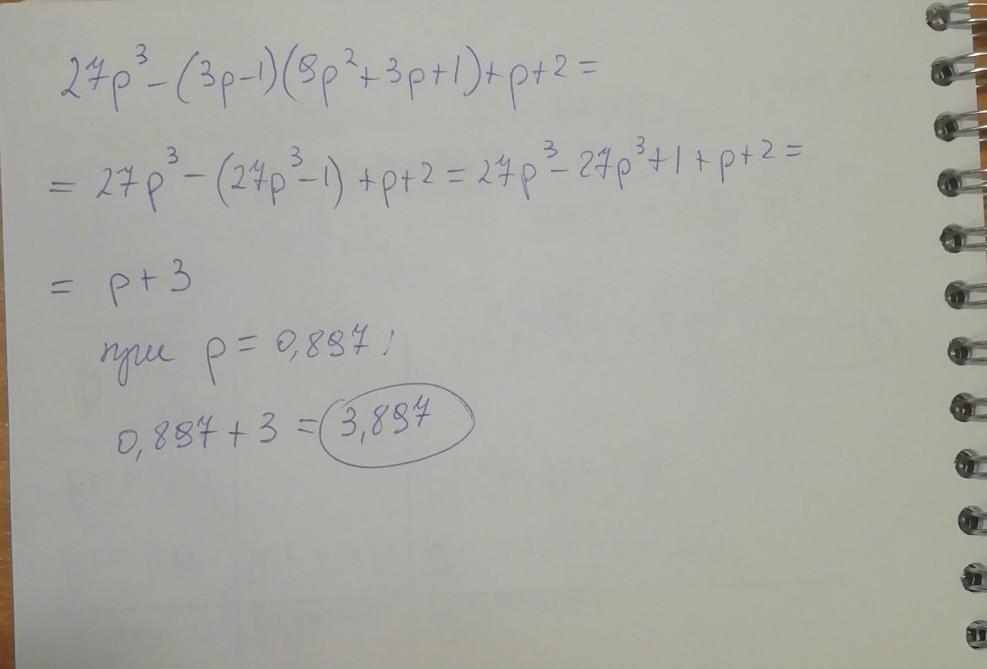 27p³ - (3p-1)(9p²+3p+1)+p+2=
= 27p³ - (27p³-1) +p+2 = 27p³ - 27p³+1+p+2=
= p+3
при p = 0,897;
0,897+3 = 3,897